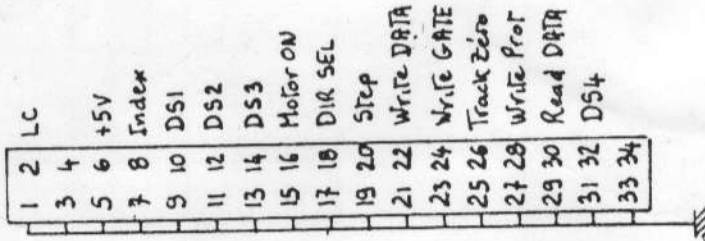 1 2 LC
3 4
5 6 +5V
7 8 Index
9 10 DS1
11 12 DS2
13 14 DS3
15 16 Motor ON
17 18 DIR SEL
19 20 Step
21 22 Write DATA
23 24 Write GATE
25 26 Track Zéro
27 28 Write Prot
29 30 Read DATA
31 32 DS4
33 34